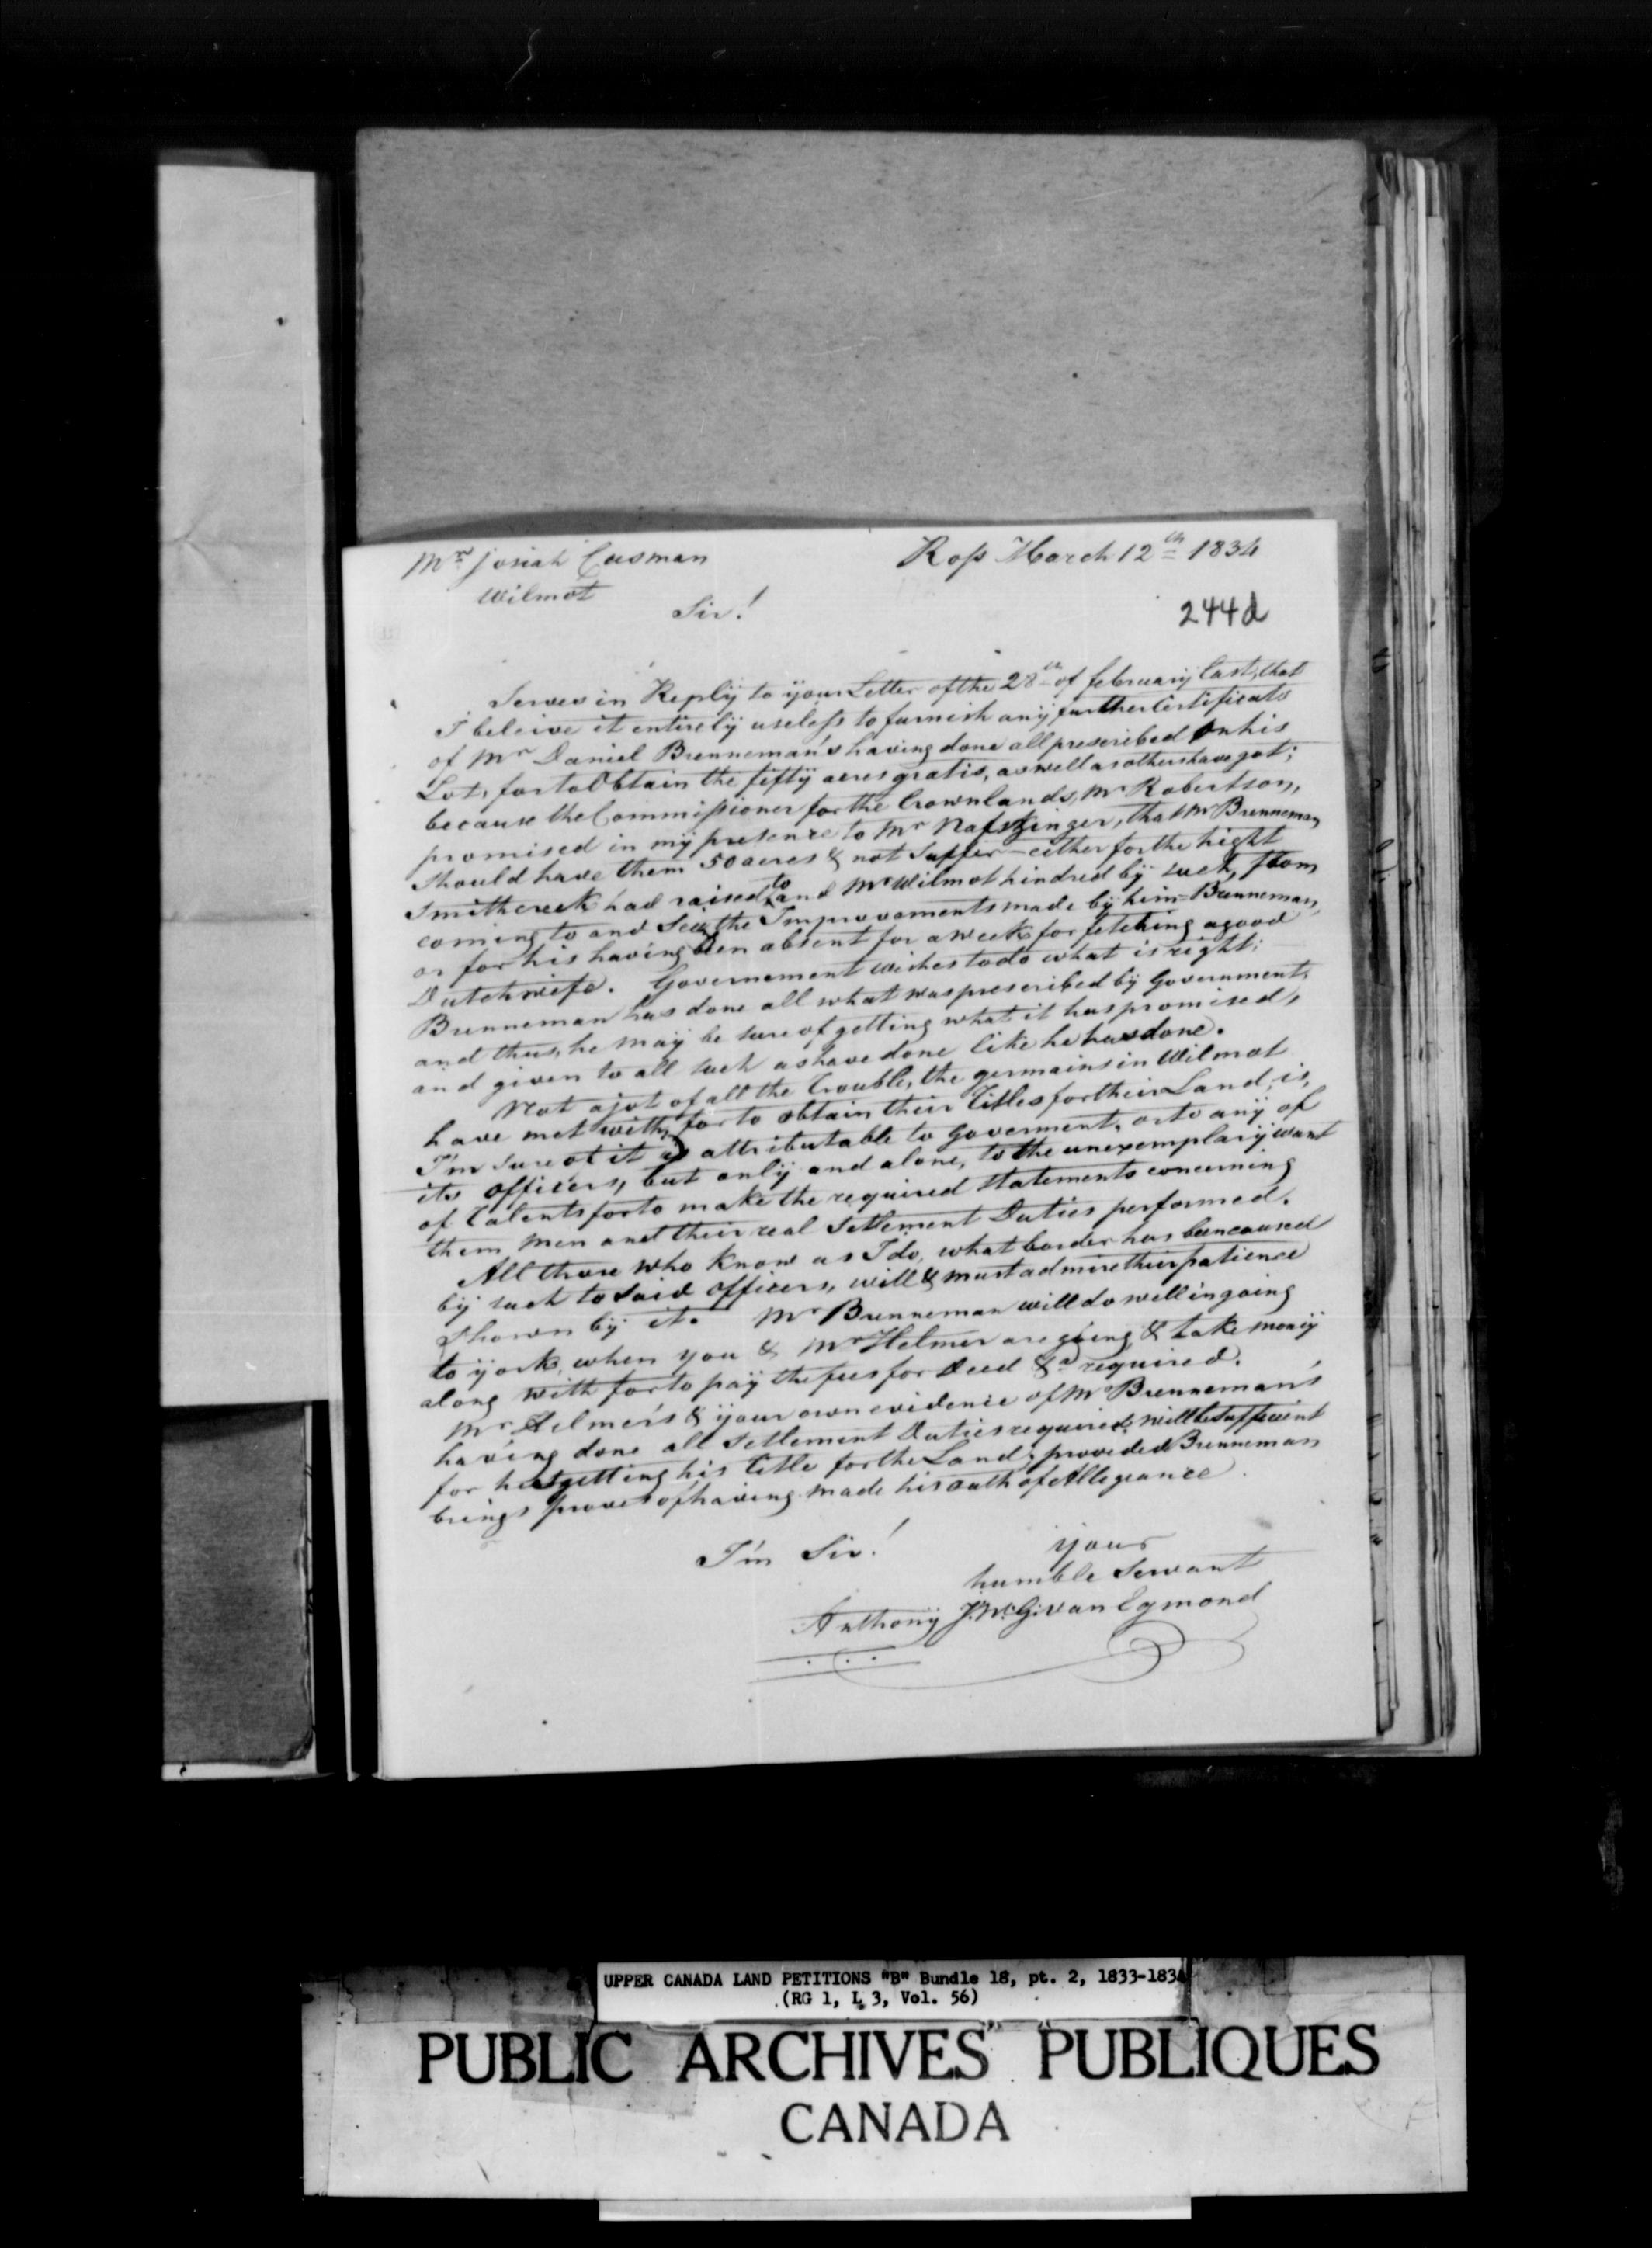 Mr. Josiah Cusman
Wilmot
Ross March 12th 1834
Sir!
244d
Serves in Reply to your Letter of the 28th of february last, that
I beleive it entirely useless to furnish any further Certificats
of Mr Daniel Brenneman's having done all prescribed on his
Lot, for to Obtain the fifty acres gratis, as well as others have got;
because the Commissioner for the Crownlands, Mr Robertson,
promised in my presence to Mr Nafziger, that Mr Brenneman
should have them 50 acres & not suffer - either for the hight
Smithcreek had raised to and Mr Wilmot hindred by such, from
coming to and See the Improvements made by him - Brenneman,
or for his having been absent for a week for fetching a good
Dutch wife. Governement wishes to do what is right;
Brenneman has done all what was prescribed by Government,
and thus, he may be sure of getting what it has promised,
and given to all such as have done like he has done.
Not a jot of all the Trouble, the germains in Wilmot
have met with, for to obtain their Titles for their Land, is,
I'm sure of it attributable to Goverment, or to any of
its officers, but only and alone, to the unexemplary want
of Talents for to make the required statements concerning
them men and their real Settlement Duties performed.
All those who know as I do, what border has been caused
by such to said officers, will & must admire their patience
shown by it. Mr Brenneman will do well in going
to york, when you & Mr Helmer are going & take money
along with for to pay the fees for Deed &a required.
Mr Helmer's & your own evidence of Mr Brenneman's
having done all Settlement Duties required, will be sufficient
for his getting his title for the Land; provided Brenneman
brings proves of having made his oath of Allegeance.
I'm Sir!
your
humble Servant
Anthony J.W.G. van Egmond
UPPER CANADA LAND PETITIONS "B" Bundle 18, pt. 2, 1833-1834
(RG 1, L 3, Vol. 56)
PUBLIC ARCHIVES PUBLIQUES
CANADA